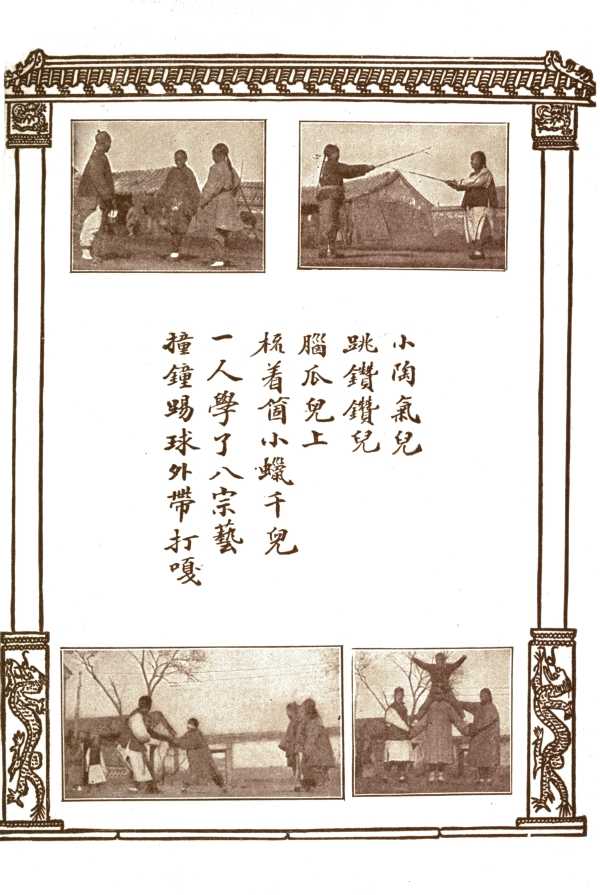 小陶氣兒
跳鑽鑽兒
腦瓜兒上
梳着箇小蠟千兒
一人學了八宗藝
撞鐘踢球外帶打嘎